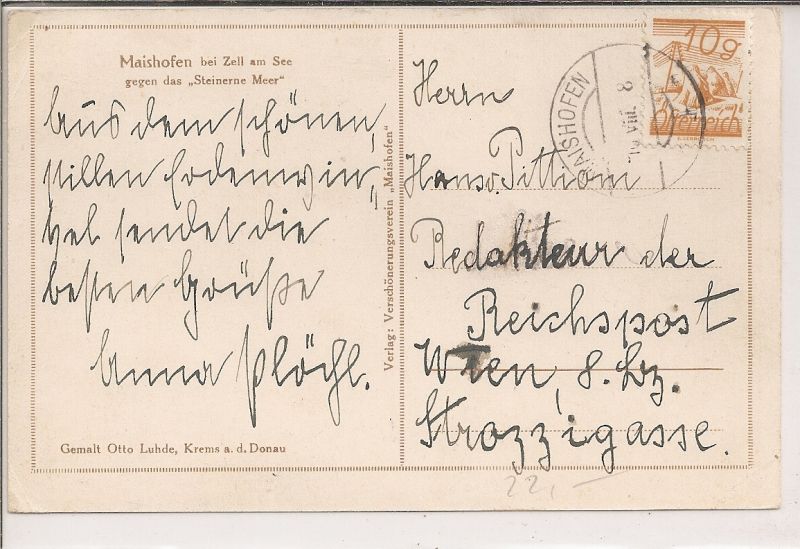 Maishofen bei Zell am See
gegen das „Steinerne Meer“
Aus dem schönen,
stillen Erdenwin-
kel sendet die
besten Grüße
Anna Plöchl.
Gemalt Otto Luhde, Krems a. d. Donau
Verlag: Verschönerungsverein „Maishofen“
10g
Österreich
MAISHOFEN
8. VIII.
Herrn
Hans v. Pittioni
Redakteur der
Reichspost
Wien, 8. Bz.
Strozzigasse.
22,—